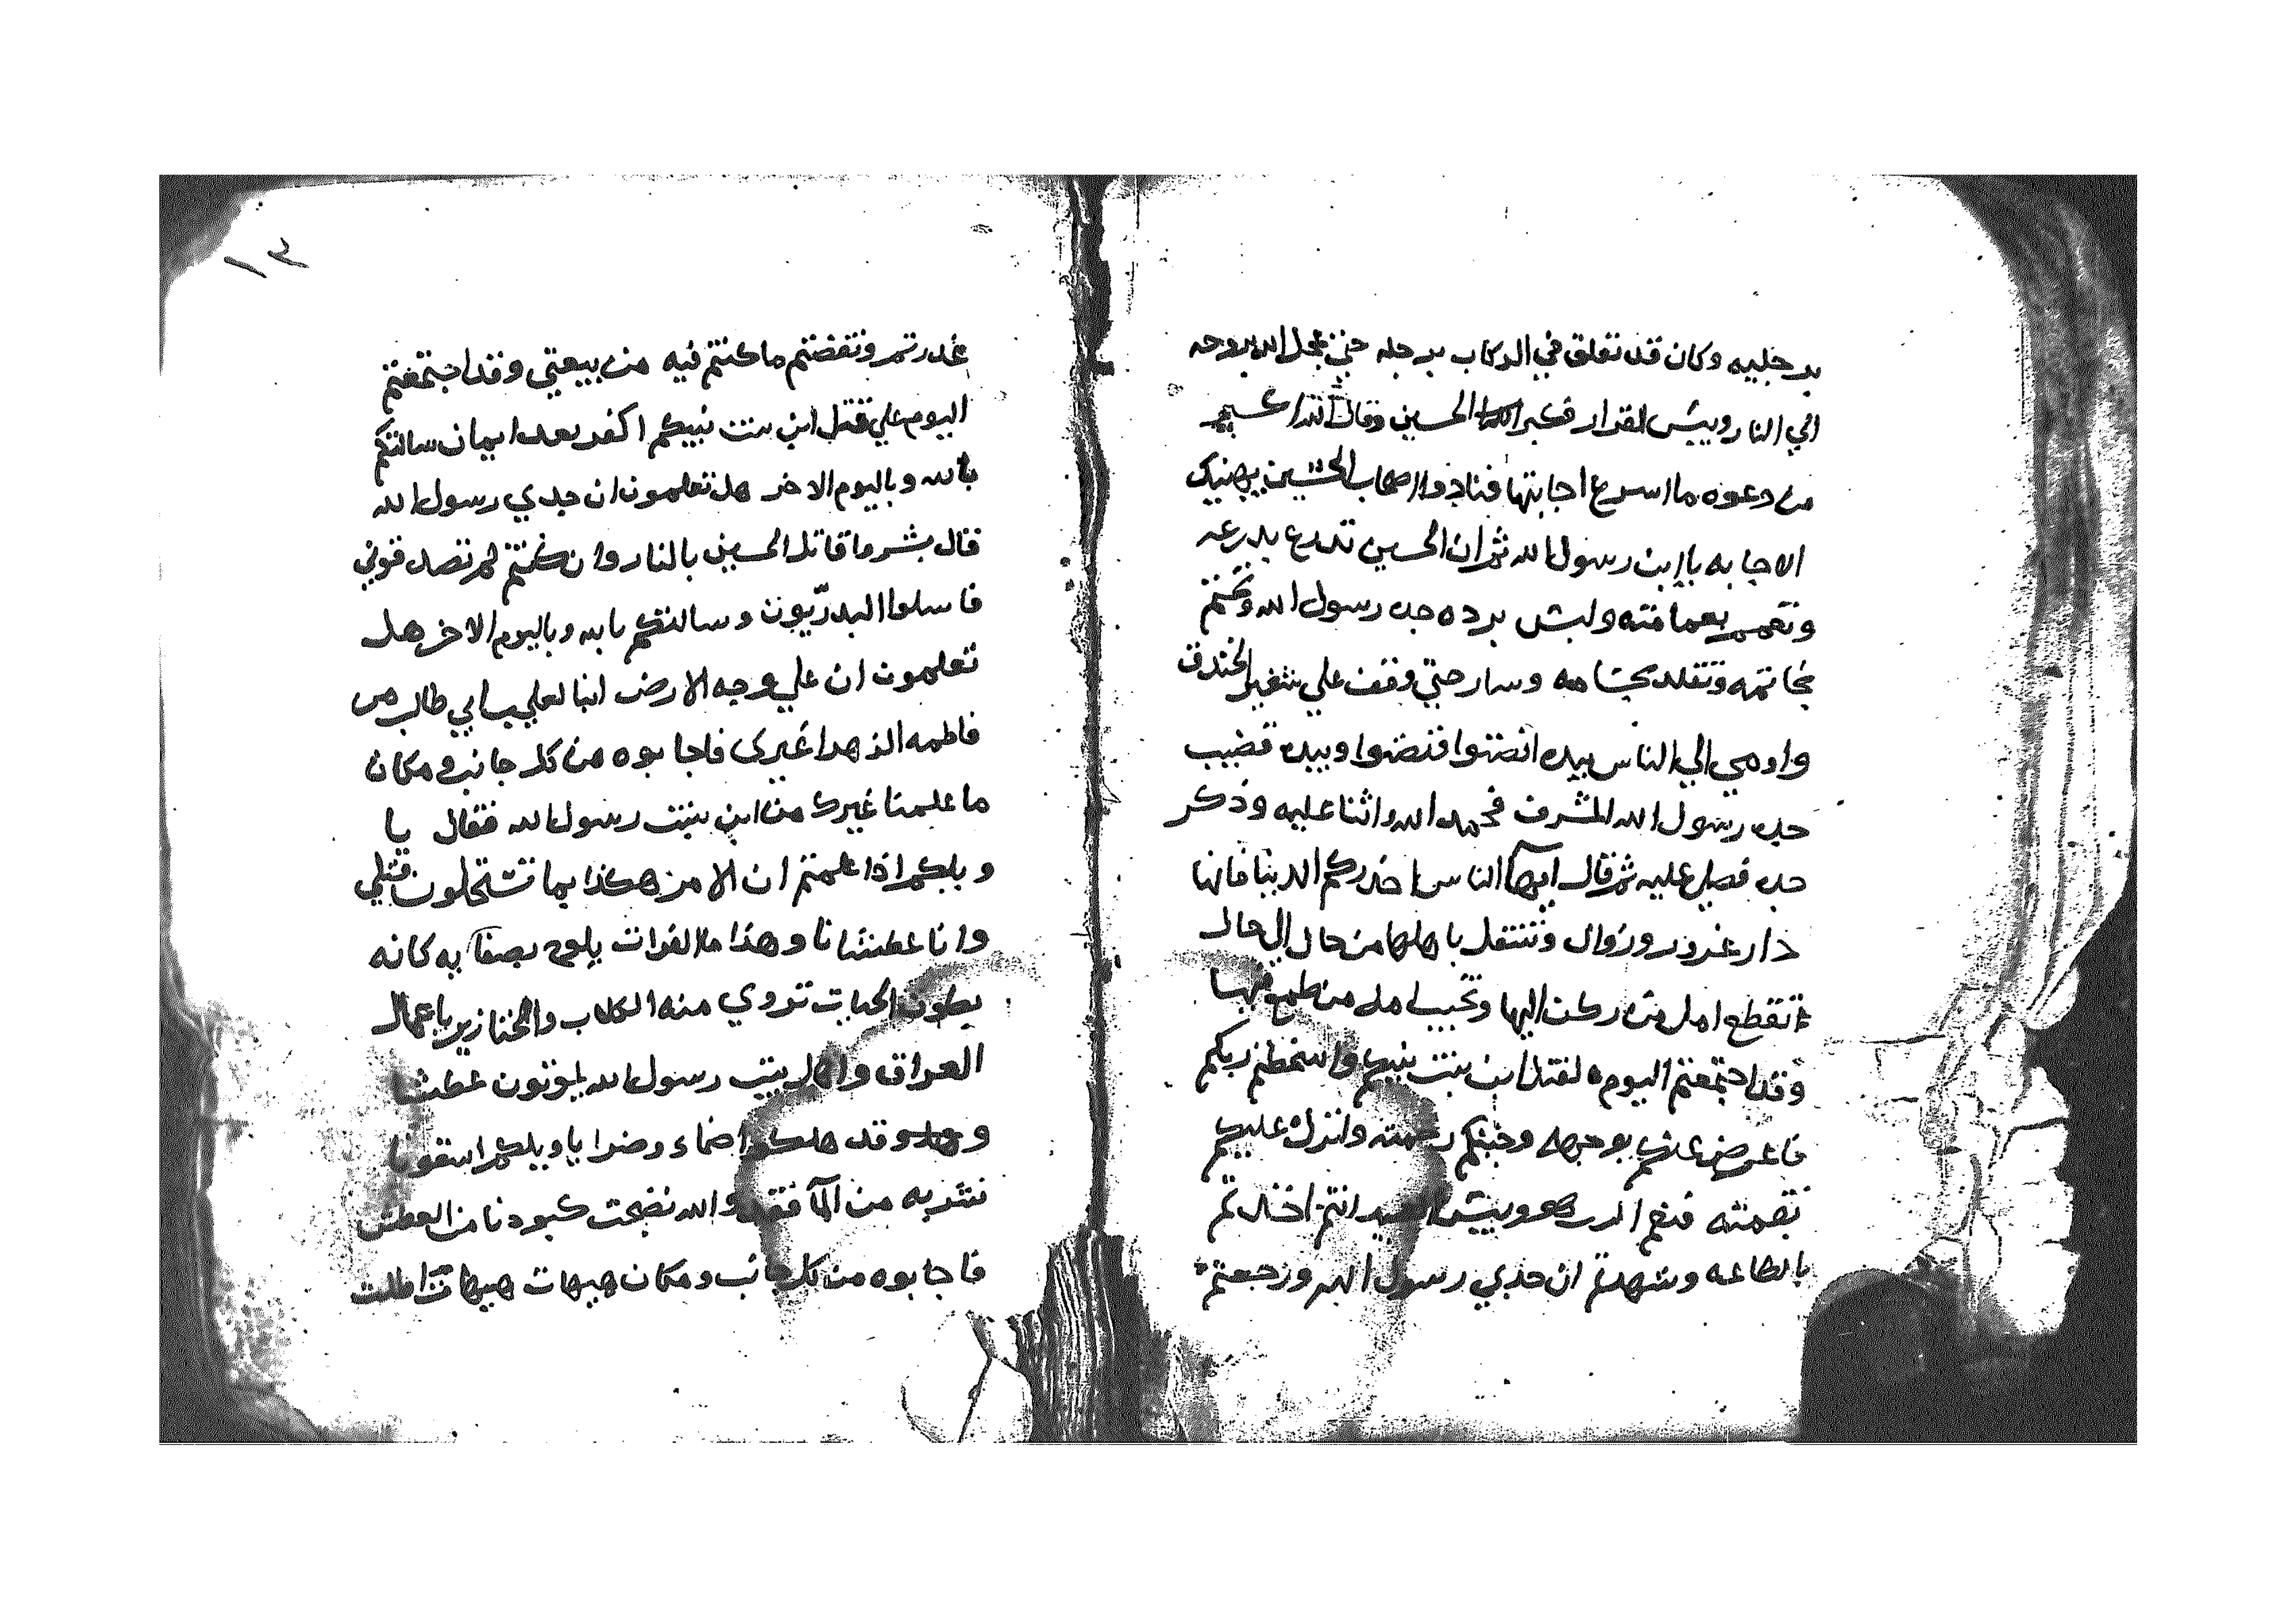 برجليه وكان قد تعلق في الركاب برجله حتي عجل الله بروحه
الي النار وبيس القرار فكبر الحسين وقال الله اكبر
من دعوه ما اسرع اجابتها فنادوا اصحاب الحسين يهنيك
الاجابه ياابن رسول الله ثم ان الحسين تدرع بدرعه
وتعمم بعمامته ولبس برده جده رسول الله وتختم
بخاتمه وتقلد بحسامه وسار حتي وقف علي شفير الخندق
واومي الي الناس بيده انصتوا فنصتوا وبيده قضيب
جده رسول الله المشرف فحمد الله واثنا عليه وذكر
جده فصلي عليه ثم قال ايها الناس احذركم الدنيا فانها
دار غرور وزوال وتنتقل باهلها من حال الي حال
انقطع امل من ركن اليها وتخيب امل من طمع فيها
وقد اجتمعتم اليوم لقتل ابن بنت نبيكم واسخطتم ربكم
فاعرض عنكم بوجهه وجنبكم رحمته وانزل عليكم
نقمته فنعم الرب هو وبيس العبيد انتم اخذتم
بالطاعه وشهدتم ان جدي رسول الله ورجعتم
١٣
غدرتم ونقضتم ماكنتم فيه من بيعتي وقد اجتمعتم
اليوم علي قتل ابن بنت نبيكم اكفر بعد ايمان سالتكم
بالله وباليوم الاخر هل تعلمون ان جدي رسول الله
قال بشر ما قاتل الحسين بالنار وان كنتم لم تصدقوني
فاسلوا البدريون وسالتكم بالله وباليوم الاخر هل
تعلمون ان علي وجه الارض ابنا لعلي بن ابي طالب من
فاطمه الزهرا غيري فاجابوه من كل جانب ومكان
ما علمنا غيرك من ابن بنت رسول الله فقال يا
ويلكم اذا علمتم ان الامر هكذا بما تستحلون قتلي
وانا عطشانا وهذا ما الفرات يلوح بصفايه كانه
بطون الحيات تروي منه الكلاب والخنازير ياعمال
العراق واهل بيت رسول الله يموتون عطشا
وقد هلكوا ضماء وضرا ياويلكم اسقونا
نشربه من المآ فقد والله نضجت كبودنا من العطش
فاجابوه من كل جانب ومكان هيهات هيهات اطلت